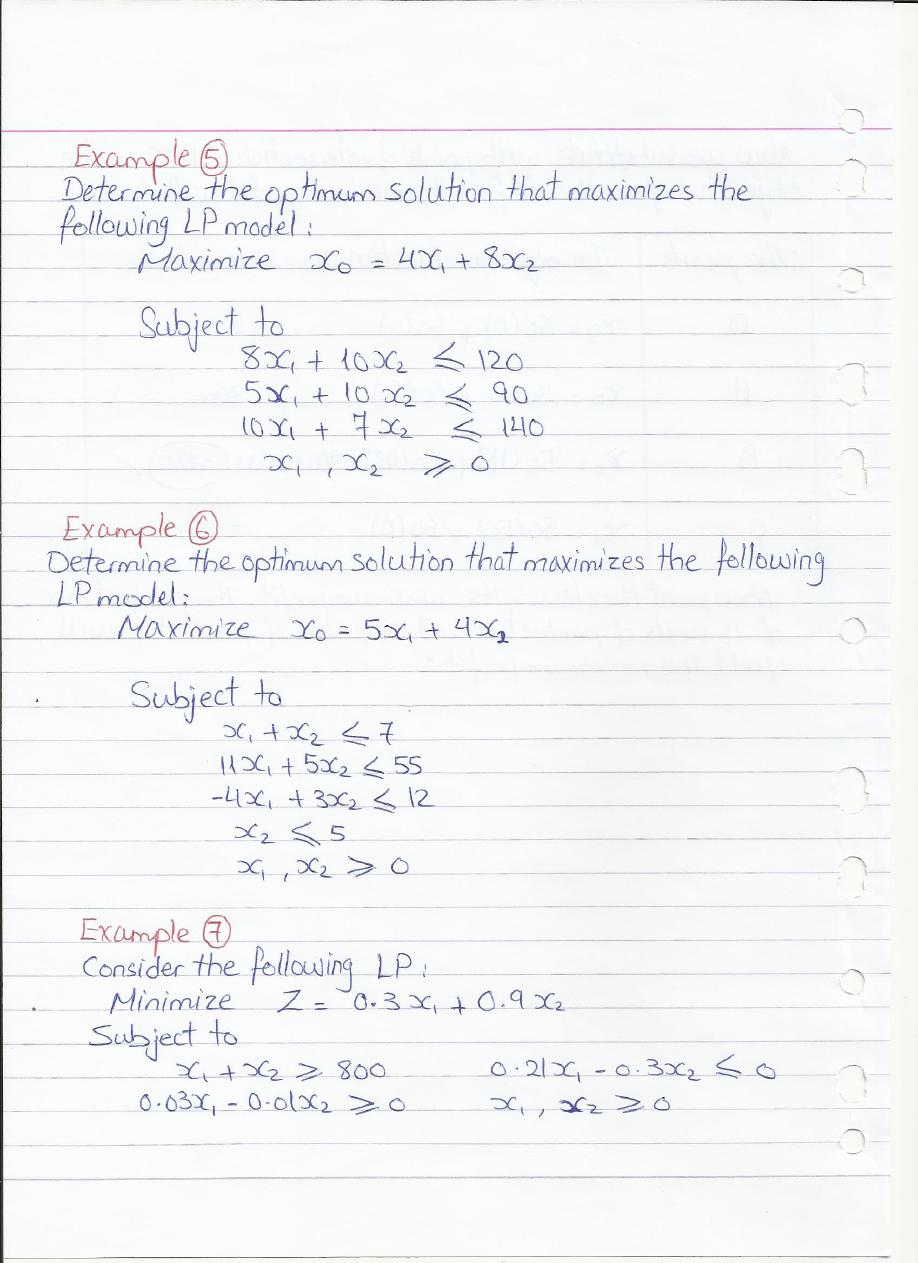 Example ⑤
Determine the optimum solution that maximizes the
following LP model:
Maximize x₀ = 4x₁ + 8x₂
Subject to
8x₁ + 10x₂ ≤ 120
5x₁ + 10x₂ ≤ 90
10x₁ + 7x₂ ≤ 140
x₁ , x₂ ≥ 0
Example ⑥
Determine the optimum solution that maximizes the following
LP model:
Maximize x₀ = 5x₁ + 4x₂
Subject to
x₁ + x₂ ≤ 7
11x₁ + 5x₂ ≤ 55
-4x₁ + 3x₂ ≤ 12
x₂ ≤ 5
x₁ , x₂ ≥ 0
Example ⑦
Consider the following LP:
Minimize Z = 0.3x₁ + 0.9x₂
Subject to
x₁ + x₂ ≥ 800 0.21x₁ - 0.3x₂ ≤ 0
0.03x₁ - 0.01x₂ ≥ 0 x₁ , x₂ ≥ 0